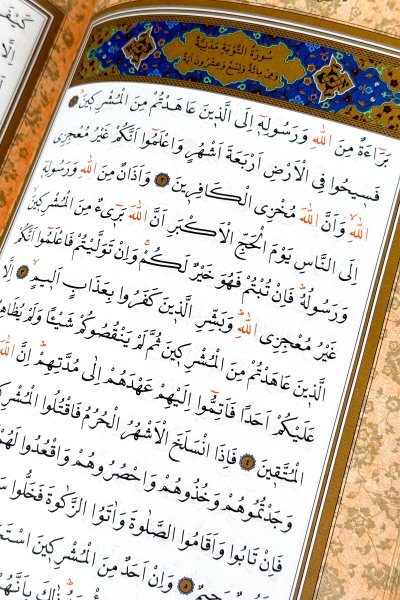 سُورَةُ التَّوْبَةِ مَدَنِيَّةٌ
وَهِيَ مِائَةٌ وَتِسْعٌ وَعِشْرُونَ اٰيَةً
بَرَٓاءَةٌ مِنَ اللّٰهِ وَرَسُولِهٖٓ اِلَى الَّذٖينَ عَاهَدْتُمْ مِنَ الْمُشْرِكٖينَ ١
فَسٖيحُوا فِي الْاَرْضِ اَرْبَعَةَ اَشْهُرٍ وَاعْلَمُٓوا اَنَّكُمْ غَيْرُ مُعْجِزِي
اللّٰهِ وَاَنَّ اللّٰهَ مُخْزِي الْكَافِرٖينَ ٢ وَاَذَانٌ مِنَ اللّٰهِ وَرَسُولِهٖٓ
اِلَى النَّاسِ يَوْمَ الْحَجِّ الْاَكْبَرِ اَنَّ اللّٰهَ بَرٖٓيءٌ مِنَ الْمُشْرِكٖينَ
وَرَسُولُهُ فَاِنْ تُبْتُمْ فَهُوَ خَيْرٌ لَكُمْ وَاِنْ تَوَلَّيْتُمْ فَاعْلَمُٓوا اَنَّكُمْ
غَيْرُ مُعْجِزِي اللّٰهِ وَبَشِّرِ الَّذٖينَ كَفَرُوا بِعَذَابٍ اَلٖيمٍ ٣ اِلَّا
الَّذٖينَ عَاهَدْتُمْ مِنَ الْمُشْرِكٖينَ ثُمَّ لَمْ يَنْقُصُوكُمْ شَيْـًٔا وَلَمْ
عَلَيْكُمْ اَحَدًا فَاَتِمُّٓوا اِلَيْهِمْ عَهْدَهُمْ اِلٰى مُدَّتِهِمْ اِنَّ اللّٰهَ
الْمُتَّقٖينَ ٤ فَاِذَا انْسَلَخَ الْاَشْهُرُ الْحُرُمُ فَاقْتُلُوا
وَجَدْتُمُوهُمْ وَخُذُوهُمْ وَاحْصُرُوهُمْ وَاقْعُدُوا لَهُمْ
فَاِنْ تَابُوا وَاَقَامُوا الصَّلٰوةَ وَاٰتَوُا الزَّكٰوةَ فَخَلُّوا
رَحٖيمٌ ٥ وَاِنْ اَحَدٌ مِنَ الْمُشْرِكٖينَ
ذٰلِكَ بِاَنَّهُمْ